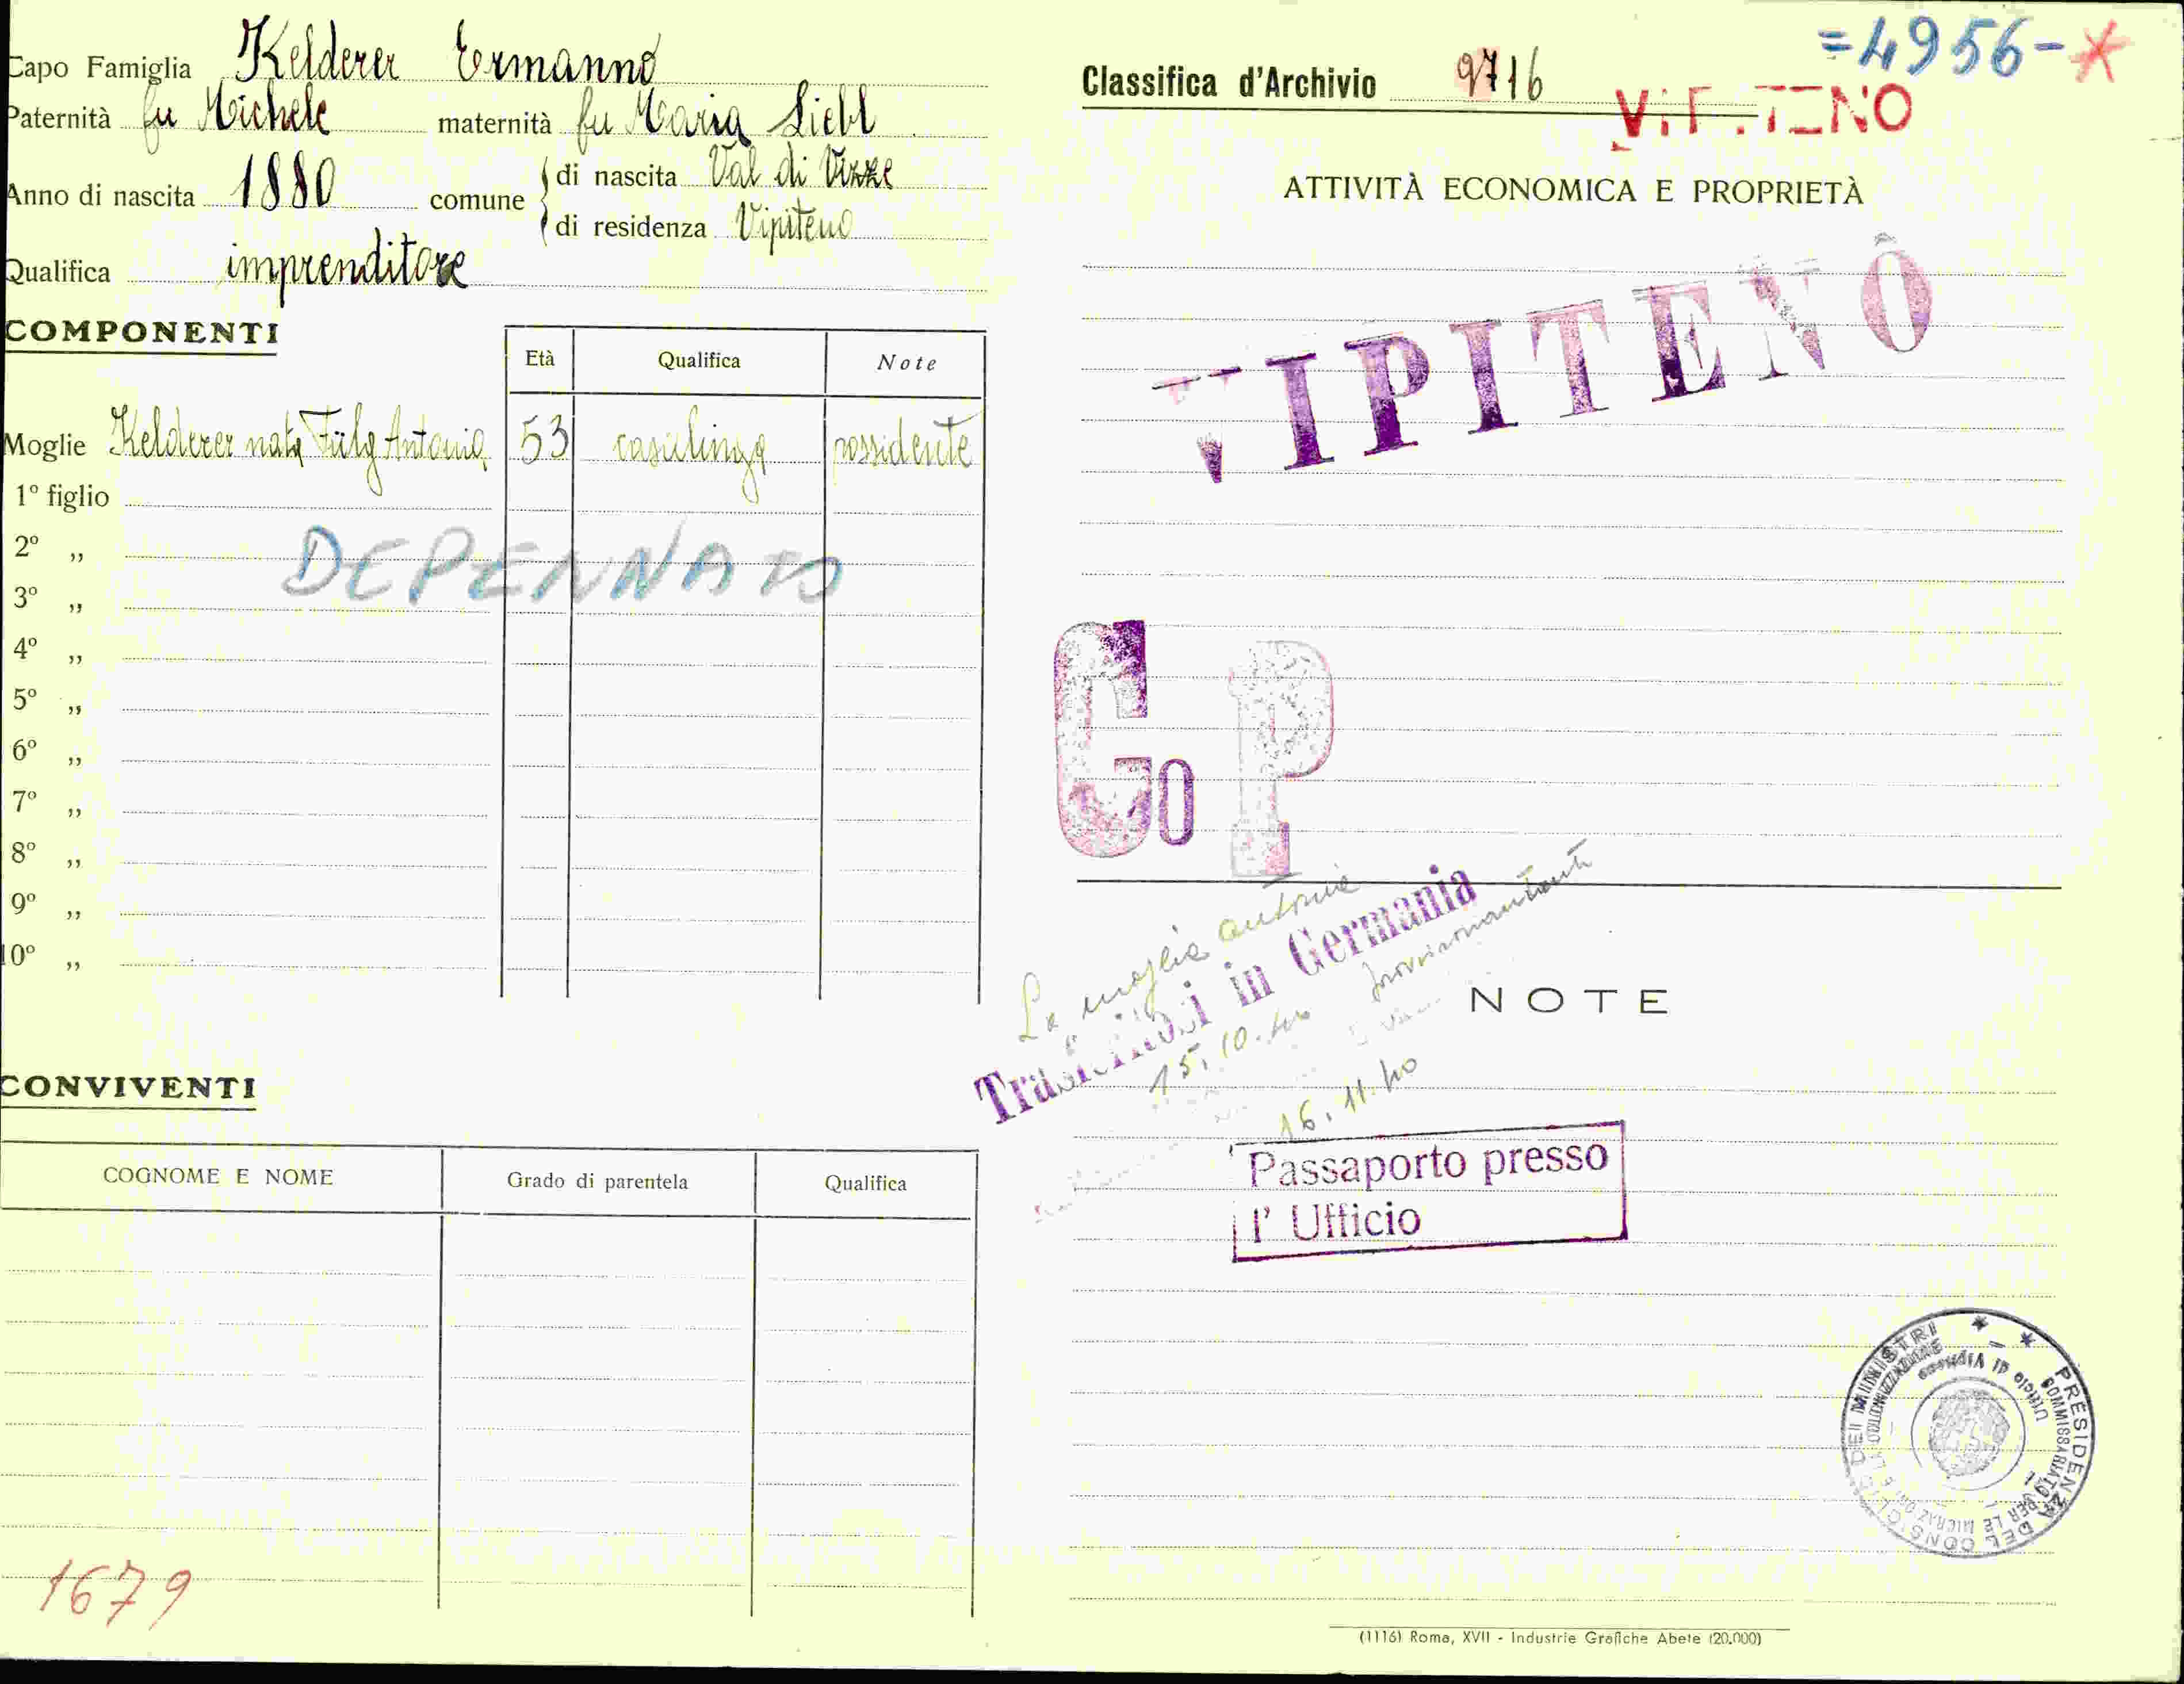 Capo Famiglia Kelderer Ermanno
Paternità fu Michele maternità fu Maria Liebl
Anno di nascita 1880 comune di nascita Val di Vizze
di residenza Vipiteno
Qualifica imprenditore
COMPONENTI
Età Qualifica Note
Moglie Kelderer nata Antonia 53 casalinga possidente
1º figlio
2º ,,
DEPENNATO
3º ,,
4º ,,
5º ,,
6º ,,
7º ,,
8º ,,
9º ,,
10º ,,
CONVIVENTI
COGNOME E NOME Grado di parentela Qualifica
1679
=4956-*
Classifica d'Archivio 9716
VIPITENO
ATTIVITÀ ECONOMICA E PROPRIETÀ
VIPITENO
Go P
La moglie Antonia
Trasferitosi in Germania
15.10.40 provvisoriamente
NOTE
16.11.40
Passaporto presso
l' Ufficio
PRESIDENZA DEL CONSIGLIO DEI MINISTRI
COMMISSARIATO PER LE MIGRAZIONI E LA COLONIZZAZIONE
Ufficio di Vipiteno
(1116) Roma, XVII - Industrie Grafiche Abete (20.000)